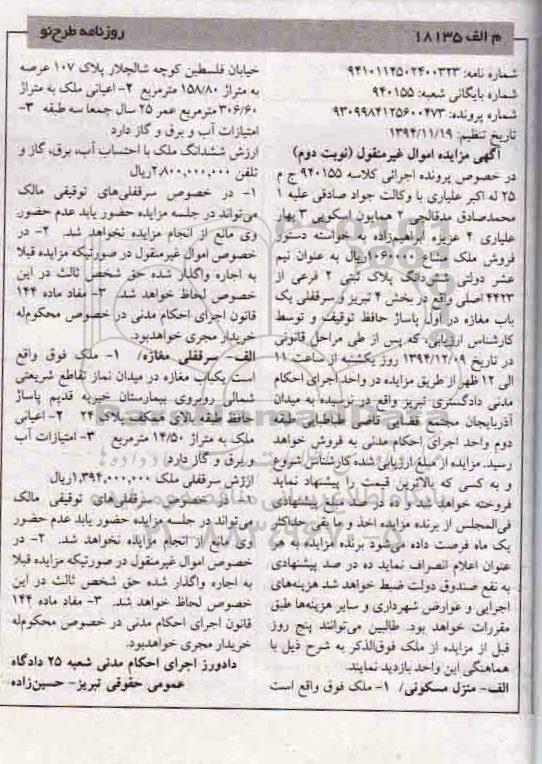 م الف ۱۸۱۳۵
روزنامه طرح‌نو
شماره نامه: ۹۴۱۰۱۱۴۵۰۲۴۰۰۳۲۳
شماره بایگانی شعبه: ۹۴۰۱۵۵
شماره پرونده: ۹۳۰۹۹۸۴۱۲۵۶۰۰۴۷۳
تاریخ تنظیم: ۱۳۹۴/۱۱/۱۹
آگهی مزایده اموال غیرمنقول (نوبت دوم)
در خصوص پرونده اجرائی کلاسه ۹۴۰۱۵۵ ج م
۲۵ له اکبر علیاری با وکالت جواد صادقی علیه ۱
محمدصادق مدقالچی ۲ همایون اسکویی ۳ بهار
علیاری ۴ عزیزه ابراهیم‌زاده به خواسته دستور
فروش ملک مشاع ۱۰۶۰۰۰۰ریال به عنوان نیم
عشر دولتی ششدانگ پلاک ثبتی ۲ فرعی از
۴۴۲۳ اصلی واقع در بخش ۴ تبریز و سرقفلی یک
باب مغازه در اول پاساژ حافظ توقیف و توسط
کارشناس ارزیابی، که پس از طی مراحل قانونی
در تاریخ ۱۳۹۴/۱۲/۰۹ روز یکشنبه از ساعت ۱۱
الی ۱۲ ظهر از طریق مزایده در واحد اجرای احکام
مدنی دادگستری تبریز واقع در نرسیده به میدان
آذربایجان مجتمع قضایی قاضی طباطبایی طبقه
دوم واحد اجرای احکام مدنی به فروش خواهد
رسید. مزایده از مبلغ ارزیابی شده کارشناس شروع
و به کسی که بالاترین قیمت را پیشنهاد نماید
فروخته خواهد شد و ده در صد مبلغ پیشنهادی
فی‌المجلس از برنده مزایده اخذ و ما بقی حداکثر
یک ماه فرصت داده می‌شود برنده مزایده به هر
عنوان اعلام انصراف نماید ده در صد پیشنهادی
به نفع صندوق دولت ضبط خواهد شد هزینه‌های
اجرایی و عوارض شهرداری و سایر هزینه‌ها طبق
مقررات خواهد بود. طالبین می‌توانند پنج روز
قبل از مزایده از ملک فوق‌الذکر به شرح ذیل با
هماهنگی این واحد بازدید نمایند.
الف- منزل مسکونی/ ۱- ملک فوق واقع است
خیابان فلسطین کوچه شالچلار پلاک ۱۰۷ عرصه
به متراژ ۱۵۸/۸۰ مترمربع ۲- اعیانی ملک به متراژ
۳۰۶/۶۰ مترمربع عمر ۲۵ سال جمعا سه طبقه ۳-
امتیازات آب و برق و گاز دارد
ارزش ششدانگ ملک با احتساب آب، برق، گاز و
تلفن ۲,۸۰۰,۰۰۰,۰۰۰ریال
۱- در خصوص سرقفلی‌های توقیفی مالک
می‌تواند در جلسه مزایده حضور یابد عدم حضور
وی مانع از انجام مزایده نخواهد شد. ۲- در
خصوص اموال غیرمنقول در صورتیکه مزایده قبلا
به اجاره واگذار شده حق شخص ثالث در این
خصوص لحاظ خواهد شد. ۳- مفاد ماده ۱۴۴
قانون اجرای احکام مدنی در خصوص محکوم‌له
خریدار مجری خواهدبود.
الف- سرقفلی مغازه/ ۱- ملک فوق واقع
است یکباب مغازه در میدان نماز تقاطع شریعتی
شمالی روبروی بیمارستان خیریه قدیم پاساژ
حافظ طبقه بالای همکف پلاک ۲۴ ۲- اعیانی
ملک به متراژ ۱۴/۵۰ مترمربع ۳- امتیازات آب
و برق و گاز دارد
ارزش سرقفلی ملک ۱,۳۹۴,۰۰۰,۰۰۰ریال
۱- در خصوص سرقفلی‌های توقیفی مالک
می‌تواند در جلسه مزایده حضور یابد عدم حضور
وی مانع از انجام مزایده نخواهد شد. ۲- در
خصوص اموال غیرمنقول در صورتیکه مزایده قبلا
به اجاره واگذار شده حق شخص ثالث در این
خصوص لحاظ خواهد شد. ۳- مفاد ماده ۱۴۴
قانون اجرای احکام مدنی در خصوص محکوم‌له
خریدار مجری خواهدبود.
دادورز اجرای احکام مدنی شعبه ۲۵ دادگاه
عمومی حقوقی تبریز- حسین‌زاده